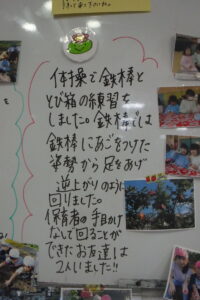 体操で鉄棒と
とび箱の練習を
しました。鉄棒では
鉄棒にあごをつけた
姿勢から足をあげ
逆上がりのように
回りました。
保育者の手助け
なしで回ることが
できたお友達は
2人いました!!